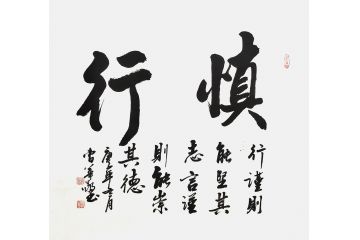 慎行
行谨則
能堅其
志言谨
則能崇
其德
庚年七月